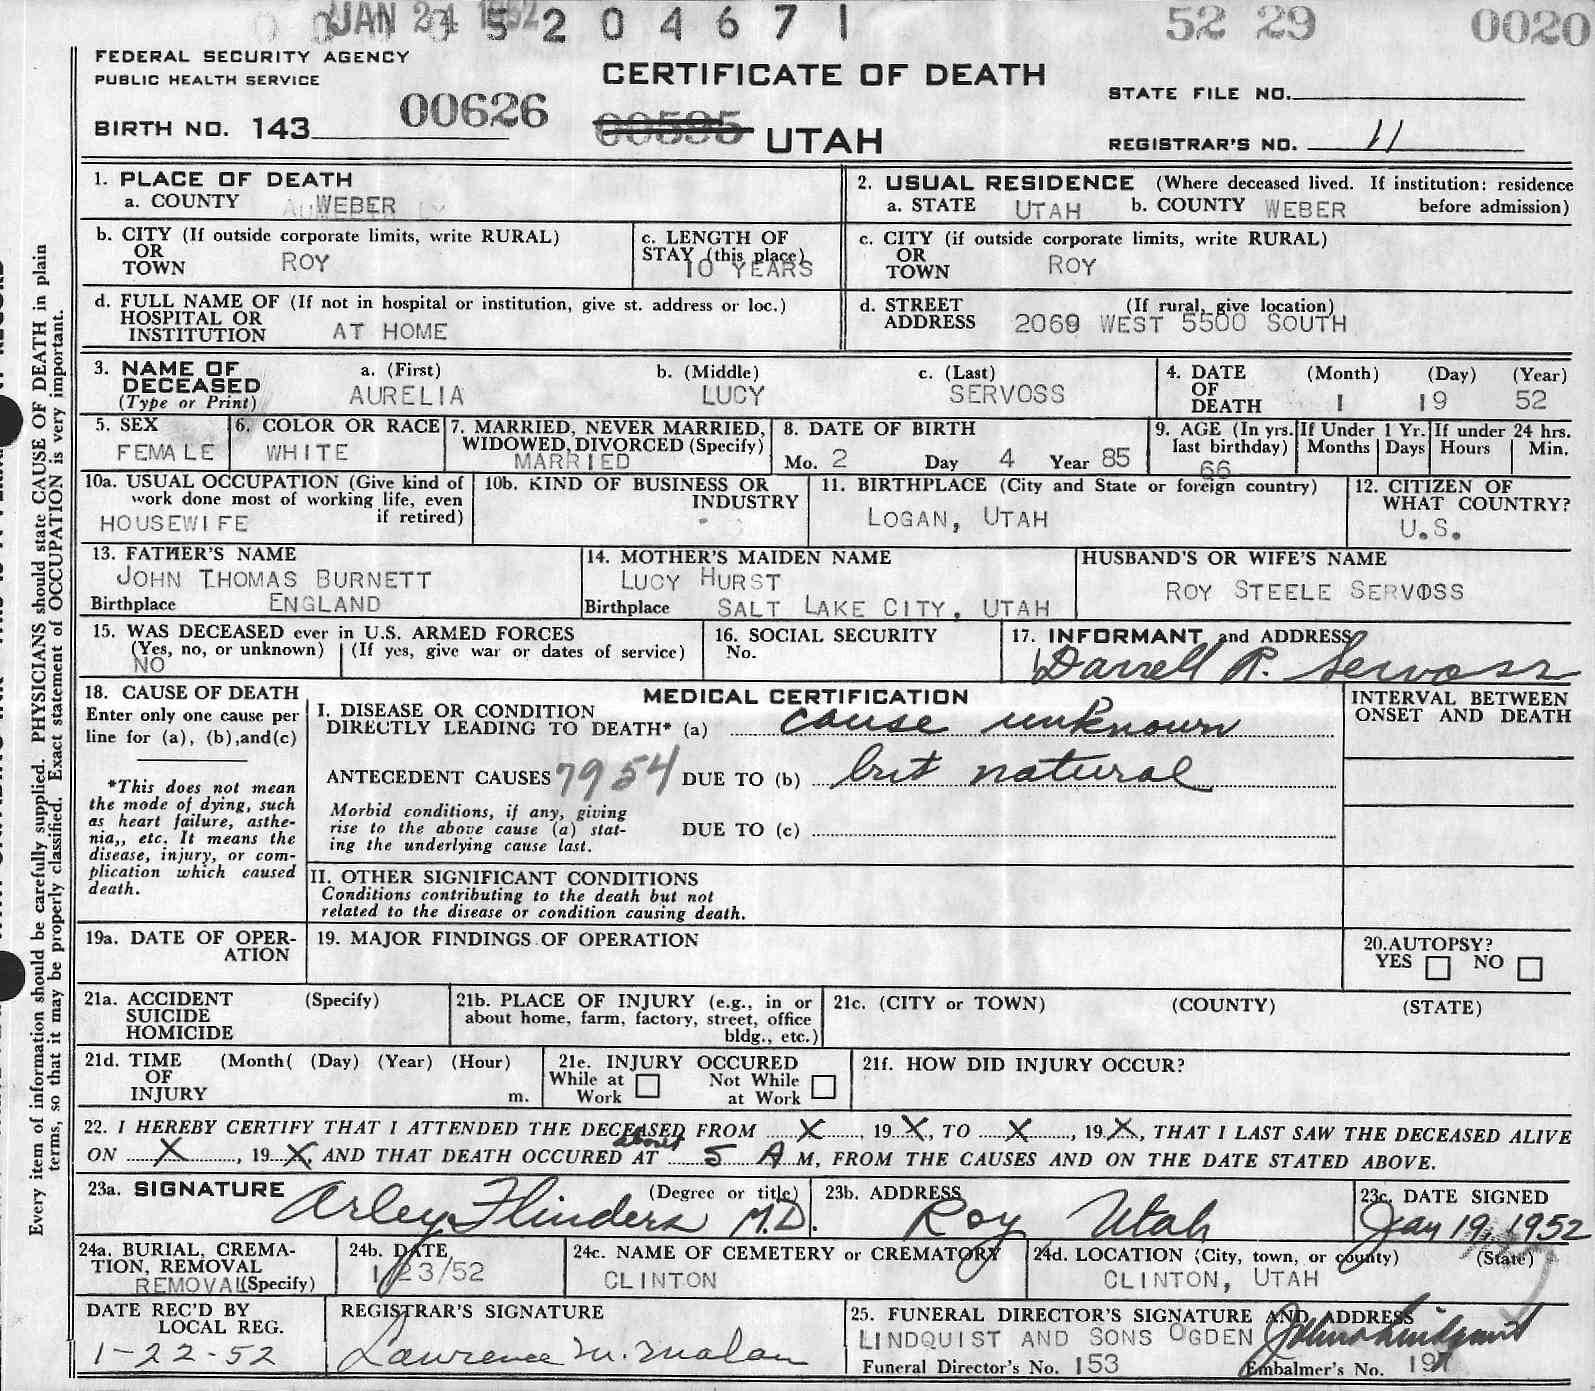 JAN 24 1952 5 2 0 4 6 7 1 52 29 0020
FEDERAL SECURITY AGENCY
PUBLIC HEALTH SERVICE
CERTIFICATE OF DEATH
STATE FILE NO.
BIRTH NO. 143 00626 00595 UTAH
REGISTRAR'S NO. 11
1. PLACE OF DEATH
a. COUNTY WEBER
2. USUAL RESIDENCE (Where deceased lived. If institution: residence
a. STATE UTAH b. COUNTY WEBER before admission)
b. CITY (If outside corporate limits, write RURAL)
OR
TOWN ROY
c. LENGTH OF
STAY (this place)
10 YEARS
c. CITY (if outside corporate limits, write RURAL)
OR
TOWN ROY
d. FULL NAME OF (If not in hospital or institution, give st. address or loc.)
HOSPITAL OR
INSTITUTION AT HOME
d. STREET (If rural, give location)
ADDRESS 2069 WEST 5500 SOUTH
3. NAME OF
DECEASED
(Type or Print)
a. (First) b. (Middle) c. (Last)
AURELIA LUCY SERVOSS
4. DATE (Month) (Day) (Year)
OF
DEATH 1 19 52
5. SEX
FEMALE
6. COLOR OR RACE
WHITE
7. MARRIED, NEVER MARRIED,
WIDOWED, DIVORCED (Specify)
MARRIED
8. DATE OF BIRTH
Mo. 2 Day 4 Year 85
9. AGE (In yrs.
last birthday)
66
If Under 1 Yr.
Months Days
If under 24 hrs.
Hours Min.
10a. USUAL OCCUPATION (Give kind of
work done most of working life, even
if retired)
HOUSEWIFE
10b. KIND OF BUSINESS OR
INDUSTRY
11. BIRTHPLACE (City and State or foreign country)
LOGAN, UTAH
12. CITIZEN OF
WHAT COUNTRY?
U.S.
13. FATHER'S NAME
JOHN THOMAS BURNETT
Birthplace ENGLAND
14. MOTHER'S MAIDEN NAME
LUCY HURST
Birthplace SALT LAKE CITY, UTAH
HUSBAND'S OR WIFE'S NAME
ROY STEELE SERVOSS
15. WAS DECEASED ever in U.S. ARMED FORCES
(Yes, no, or unknown) (If yes, give war or dates of service)
NO
16. SOCIAL SECURITY
No.
17. INFORMANT and ADDRESS
Darrell R. Servoss
18. CAUSE OF DEATH
Enter only one cause per
line for (a), (b),and(c)
*This does not mean
the mode of dying, such
as heart failure, asthe-
nia,, etc. It means the
disease, injury, or com-
plication which caused
death.
MEDICAL CERTIFICATION
I. DISEASE OR CONDITION
DIRECTLY LEADING TO DEATH* (a) cause unknown
ANTECEDENT CAUSES 7954 DUE TO (b) but natural
Morbid conditions, if any, giving
rise to the above cause (a) stat-
ing the underlying cause last.
DUE TO (c)
II. OTHER SIGNIFICANT CONDITIONS
Conditions contributing to the death but not
related to the disease or condition causing death.
INTERVAL BETWEEN
ONSET AND DEATH
19a. DATE OF OPER-
ATION
19. MAJOR FINDINGS OF OPERATION
20.AUTOPSY?
YES NO
21a. ACCIDENT (Specify)
SUICIDE
HOMICIDE
21b. PLACE OF INJURY (e.g., in or
about home, farm, factory, street, office
bldg., etc.)
21c. (CITY or TOWN) (COUNTY) (STATE)
21d. TIME (Month( (Day) (Year) (Hour)
OF
INJURY m.
21e. INJURY OCCURED
While at Not While
Work at Work
21f. HOW DID INJURY OCCUR?
22. I HEREBY CERTIFY THAT I ATTENDED THE DECEASED FROM X, 19 X, TO X, 19 X, THAT I LAST SAW THE DECEASED ALIVE
about
ON X, 19 X, AND THAT DEATH OCCURED AT 5 A M, FROM THE CAUSES AND ON THE DATE STATED ABOVE.
23a. SIGNATURE (Degree or title)
Arley Flinders M.D.
23b. ADDRESS
Roy Utah
23c. DATE SIGNED
Jan 19, 1952
24a. BURIAL, CREMA-
TION, REMOVAL
REMOVAL (Specify)
24b. DATE
1/23/52
24c. NAME OF CEMETERY or CREMATORY
CLINTON
24d. LOCATION (City, town, or county) (State)
CLINTON, UTAH
DATE REC'D BY
LOCAL REG.
1-22-52
REGISTRAR'S SIGNATURE
Lawrence M. Malan
25. FUNERAL DIRECTOR'S SIGNATURE AND ADDRESS
LINDQUIST AND SONS OGDEN
Funeral Director's No. 153 Embalmer's No. 197
Every item of information should be carefully supplied. PHYSICIANS should state CAUSE OF DEATH in plain
terms, so that it may be properly classified. Exact statement of OCCUPATION is very important.